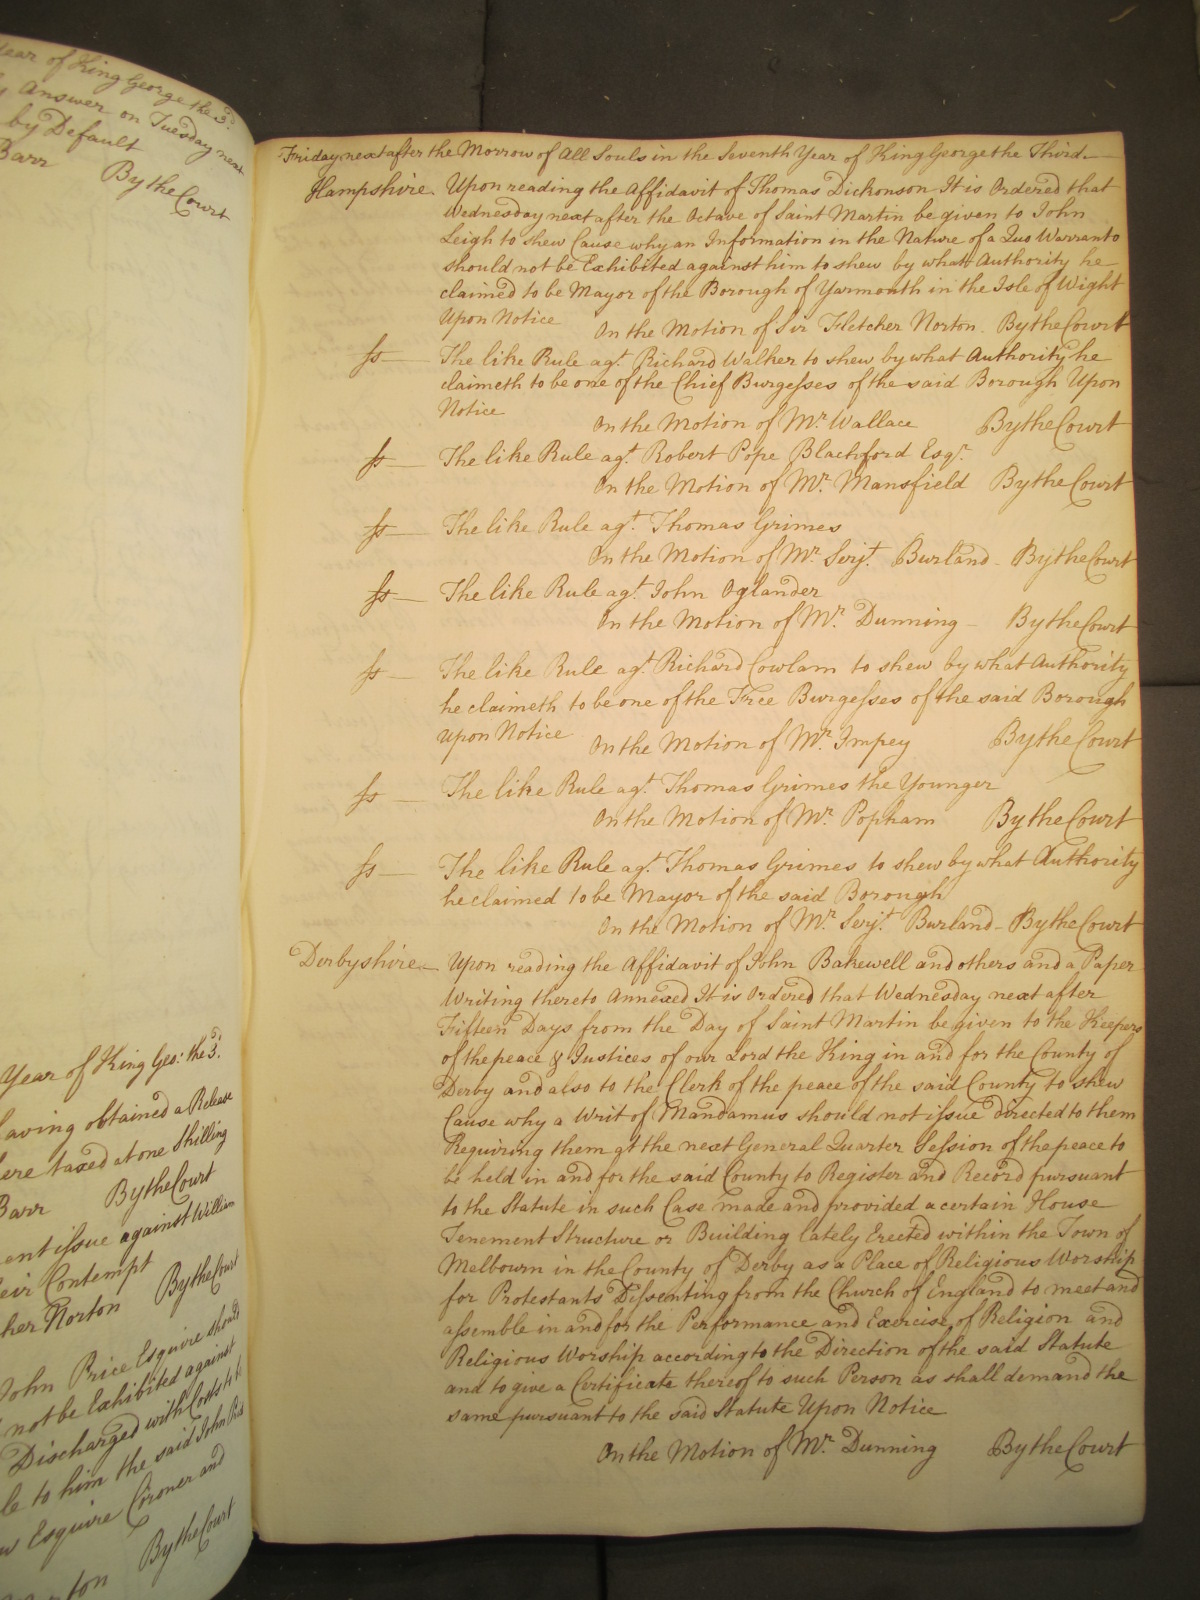 Year of King George the 3d.
Answer on Tuesday next
by Default
Barr By the Court
Year of King Geo: the 3d.
having obtained a Release
were taxed at one Shilling
Barr By the Court
issue against William
their Contempt
Norton By the Court
John Price Esquire should
not be Exhibited against
Discharged with Costs to be
to him the said John Price
Esquire Coroner and
By the Court
Friday next after the Morrow of All Souls in the Seventh Year of King George the Third.
Hampshire. Upon reading the Affidavit of Thomas Dickonson It is Ordered that
Wednesday next after the Octave of Saint Martin be given to John
Leigh to shew Cause why an Information in the Nature of a Quo Warranto
should not be Exhibited against him to shew by what Authority he
claimed to be Mayor of the Borough of Yarmouth in the Isle of Wight
Upon Notice On the Motion of Sir Fletcher Norton. By the Court
ss — The like Rule agt. Richard Walker to shew by what Authority he
claimeth to be one of the Chief Burgesses of the said Borough Upon
Notice On the Motion of Mr. Wallace By the Court
ss — The like Rule agt. Robert Pope Blachford Esqr.
On the Motion of Mr. Mansfield By the Court
ss — The like Rule agt. Thomas Grimes
On the Motion of Mr. Serjt. Burland - By the Court
ss — The like Rule agt. John Oglander
On the Motion of Mr. Dunning - By the Court
ss — The like Rule agt. Richard Cowlam to shew by what Authority
he claimeth to be one of the Free Burgesses of the said Borough
upon Notice On the Motion of Mr. Impey By the Court
ss — The like Rule agt. Thomas Grimes the Younger
On the Motion of Mr. Popham By the Court
ss — The like Rule agt. Thomas Grimes to shew by what Authority
he claimed to be Mayor of the said Borough
On the Motion of Mr. Serjt. Burland - By the Court
Derbyshire. Upon reading the Affidavit of John Bakewell and others and a Paper
Writing thereto Annexed It is Ordered that Wednesday next after
Fifteen Days from the Day of Saint Martin be given to the Keepers
of the peace & Justices of our Lord the King in and for the County of
Derby and also to the Clerk of the peace of the said County to shew
Cause why a Writ of Mandamus should not issue directed to them
Requiring them at the next General Quarter Session of the peace to
be held in and for the said County to Register and Record pursuant
to the Statute in such Case made and provided a certain House
Tenement Structure or Building lately Erected within the Town of
Melbourn in the County of Derby as a Place of Religious Worship
for Protestants Dissenting from the Church of England to meet and
assemble in and for the Performance and Exercise of Religion and
Religious Worship according to the Direction of the said Statute
and to give a Certificate thereof to such Person as shall demand the
same pursuant to the said Statute Upon Notice
On the Motion of Mr. Dunning By the Court